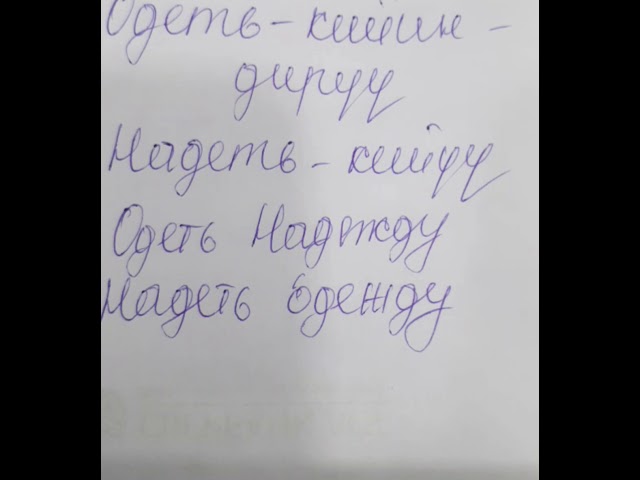 Одеть - кийин -
дирүү
Надеть - кийүү
Одеть Надежду
Надеть одежду